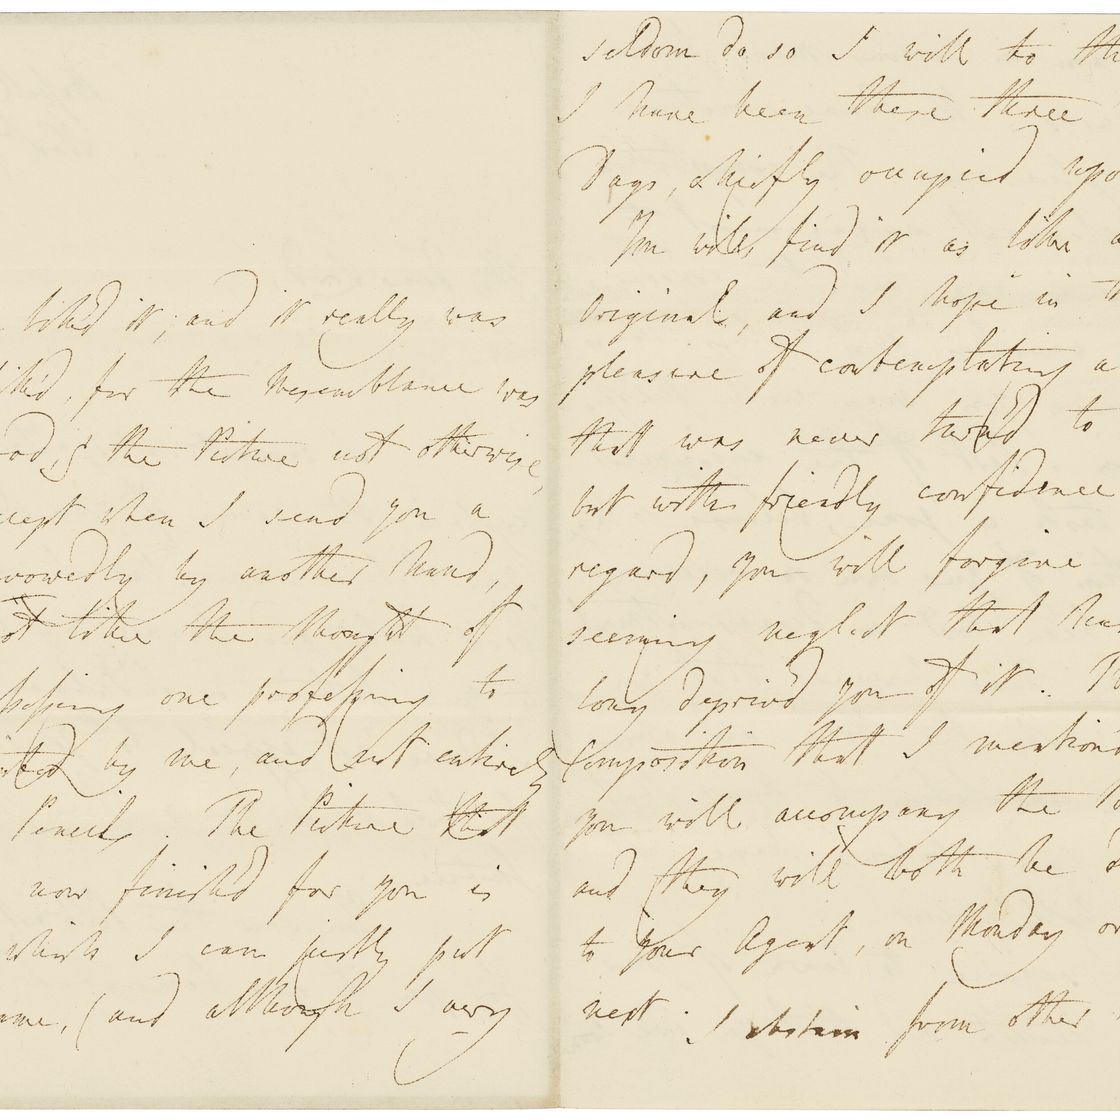 lik'd it; and it really was
lik'd, for the Resemblance was
the Picture not otherwise,
when I send you a
avowedly by another hand,
not like the thought of
one professing to
by me, and not entirely
Pencil. The Picture that
now finish'd for you is
which I can justly put
name, (and although I very
seldom do so I will to
I have been these three
Days, chiefly occupied
You will find it as like
Original, and I hope in
pleasure of contemplating a
that was never turn'd to
but with friendly confidence
regard, you will forgive
seeming neglect that
long depriv'd you of it.
Composition that I
you will accompany the
and they will both be
to your Agent, on Monday or
next. I abstain from other